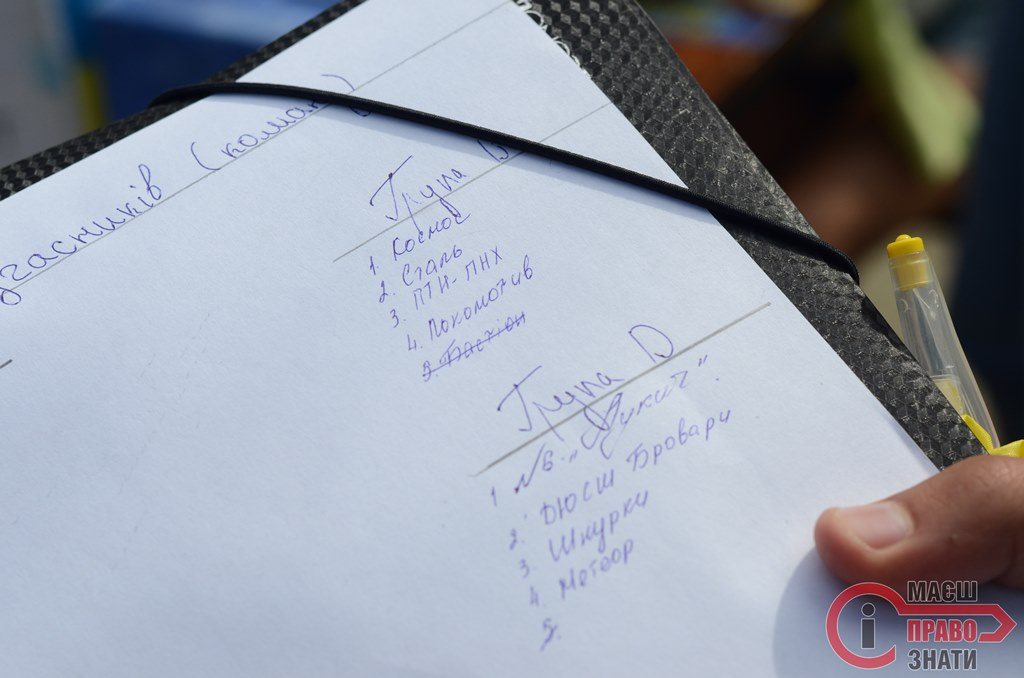 учасників (коман)
Група
1. Космос
2. Сталь
3. ПТН-ПНХ
4. Локомотив
5. Бастіон
Група D
1 "Букич"
2. ДЮСШ Бровари
3. Шкурки
4. Метеор
5.
МАЄШ
ПРАВО
ЗНАТИ